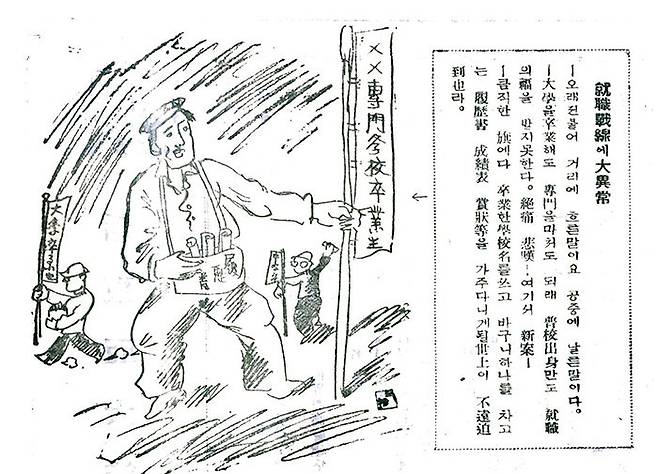 就職戰線에 大異常
―오래전붙어 거리에 흐른말이요 공중에 날른말이다.
―大學을卒業해도 專門을마처도 되래 普校出身만도 就職
의福을 받지못한다. 絶痛 悲嘆―여기서 新案―
―큼직한 旗에다 卒業한學校名를쓰고 바구니하나를 차고
는 履歷書 成績表 賞狀等을 가주다니게될世上이 不遠迫
到也라.
××專門学校卒業生